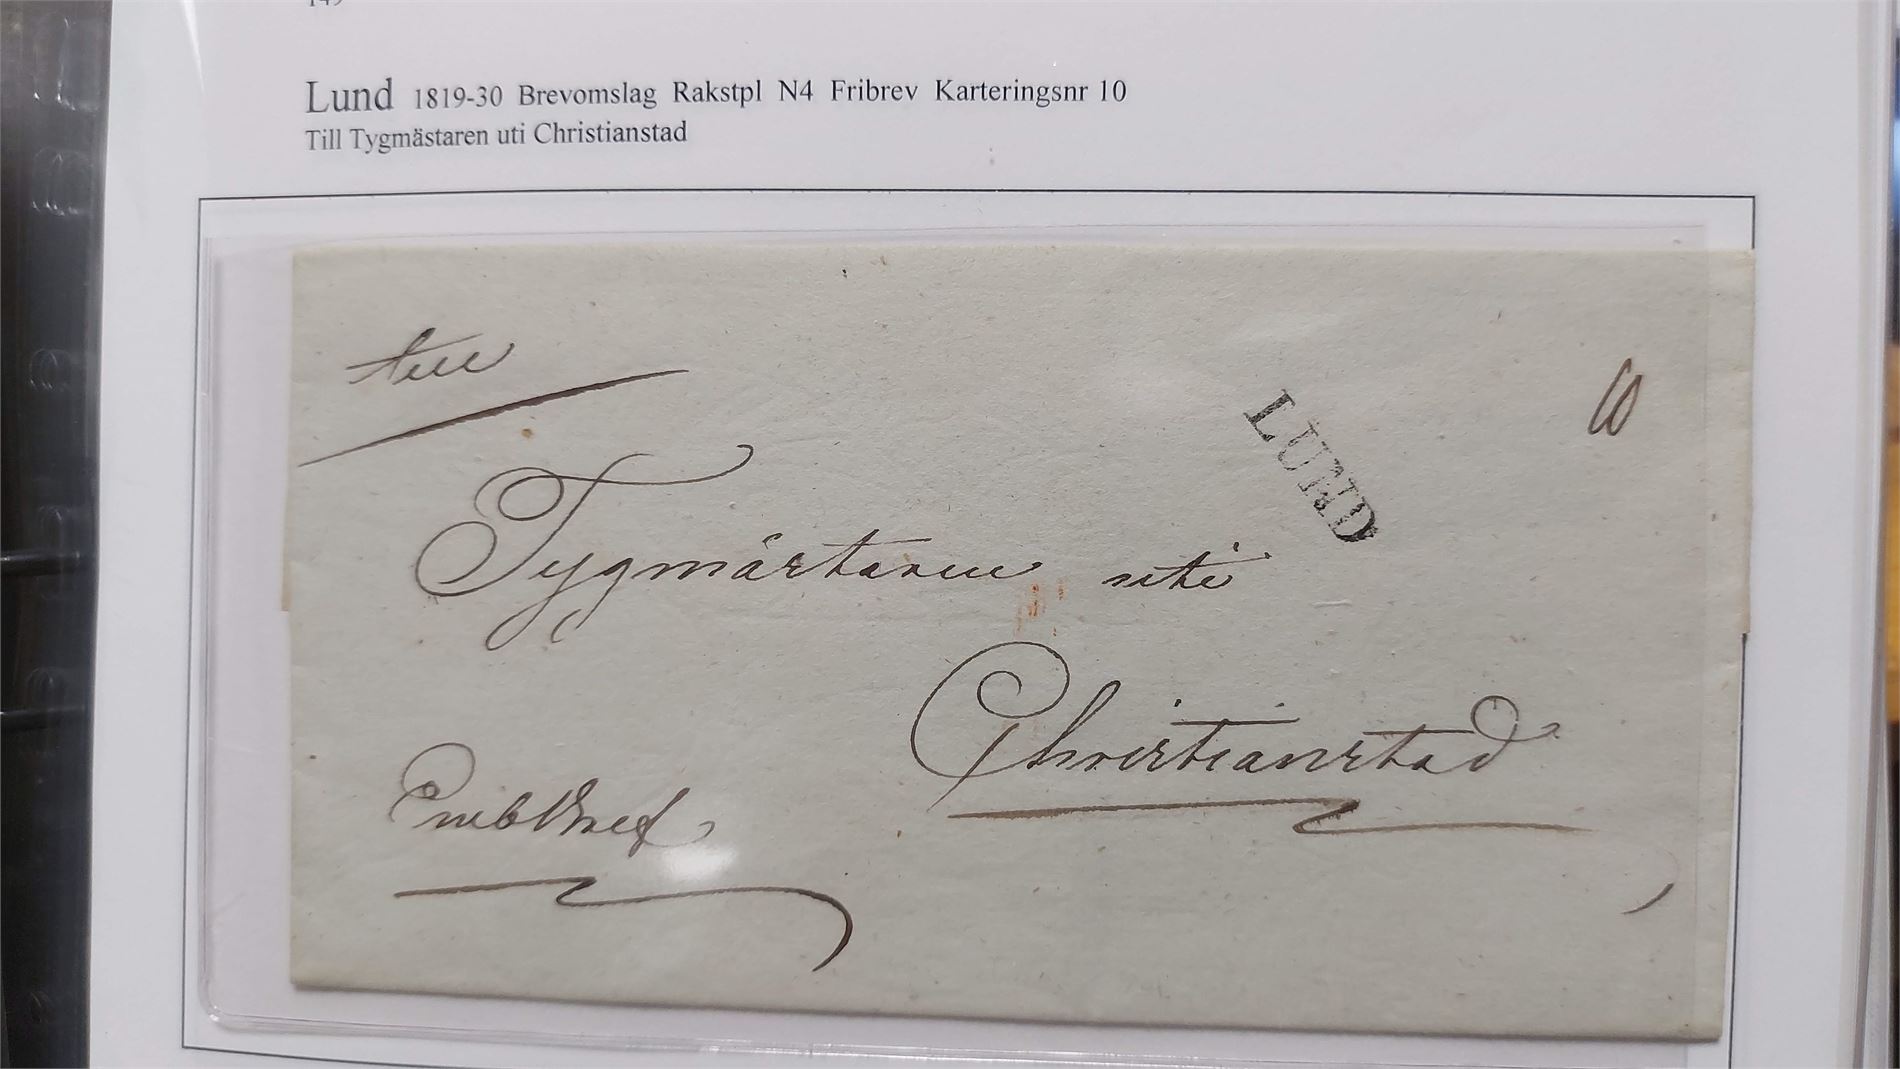 149
Lund 1819-30 Brevomslag Rakstpl N4 Fribrev Karteringsnr 10
Till Tygmästaren uti Christianstad
till
10
LUND
Tygmästaren uti
Christianstad